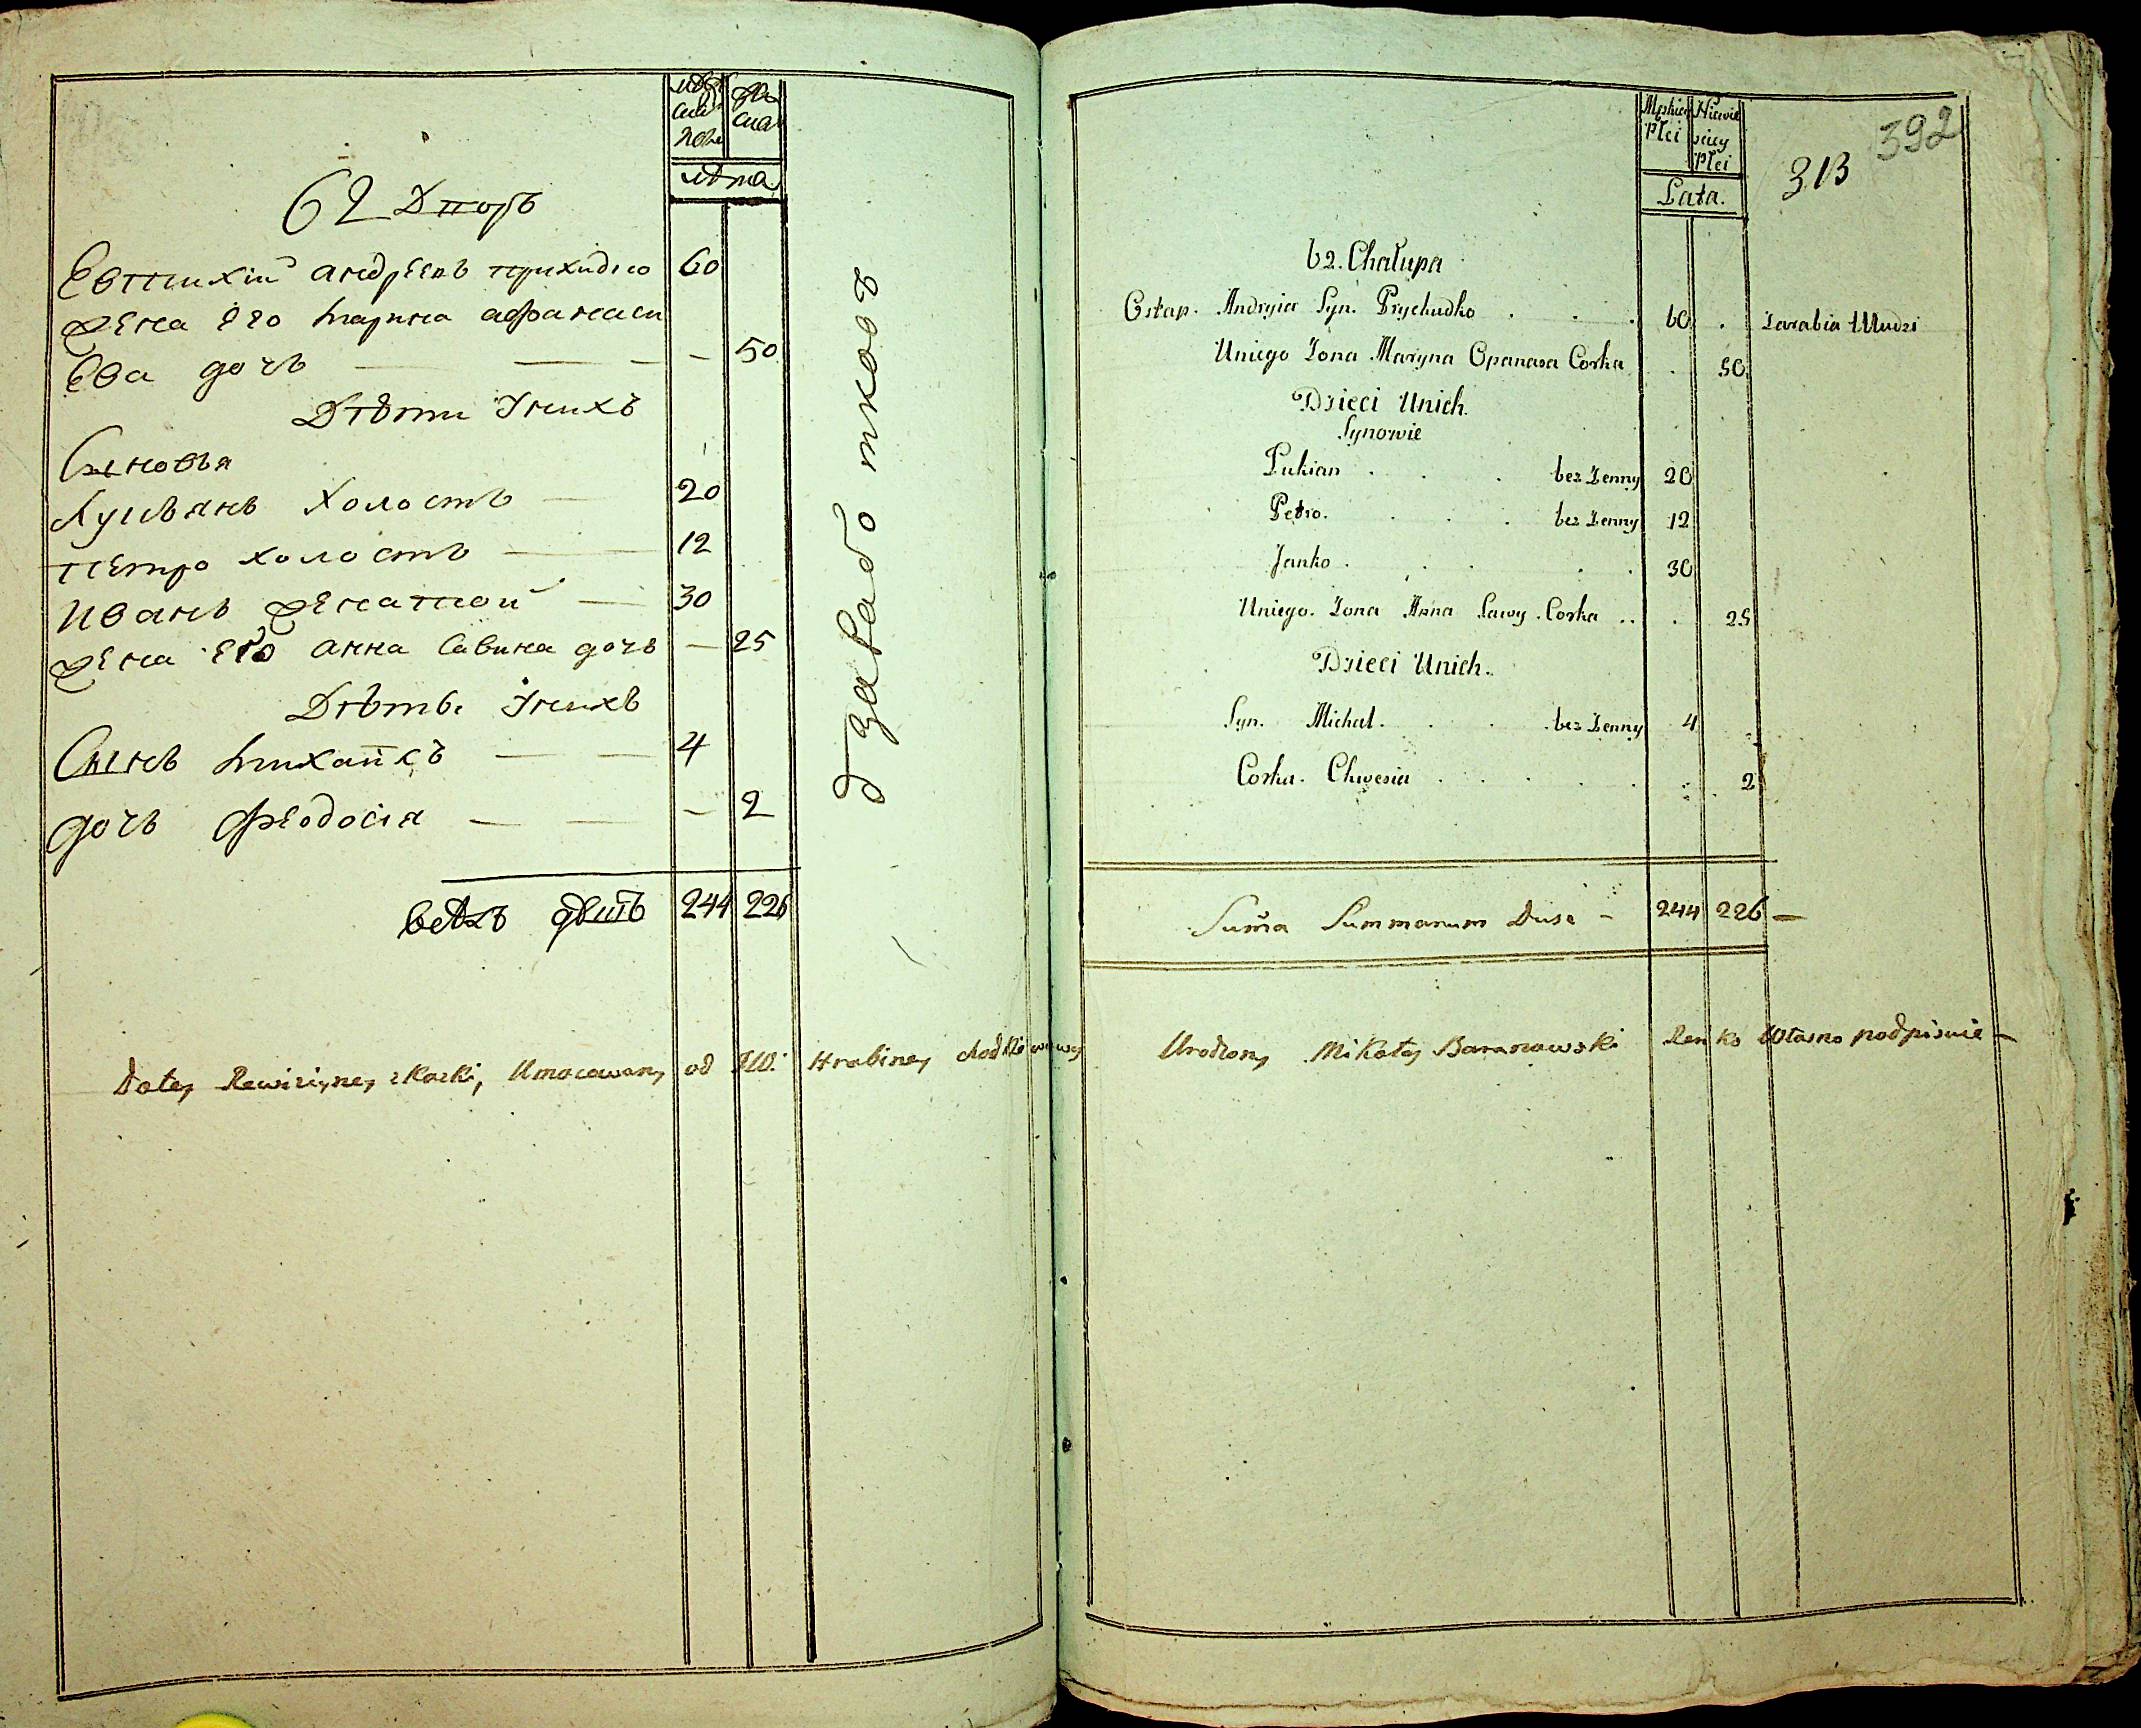 62 Дворъ
Евтихій андреевъ прихидко 60
жена его марина афанаси
ева дочъ — — — 50
Дѣти Ихъ
Сыновья
Лукьянъ холостъ — 20
петро холостъ — 12
иванъ женатой — 30
жена его анна савина дочъ — 25
Дѣти Ихъ
Сынъ михайлъ — — 4
дочъ феодосія — — — 2
всѣхъ душъ 244 226
Datey Rewizyiney skaski, Umocowany od JW. Hrabiney Chodkiewiczowey
лѣта
392
313
Męskiey Płci
Niewieściey Płci
Lata.
62. Chałupa
Ostap. Andryia Syn. Prychudko . . . 60 . Zarabia U Ludzi
Uniego Zona Maryna Opanasa Corka . . 50.
Dzieci Unich.
Synowie
Lukian . . . bez Zenny 20
Petro. . . . bez Zenny 12
Janko . . . . . 30
Uniego. Zona Anna Sawy. Corka .. . 25
Dzieci Unich.
Syn. Michał. . . . bez Zenny 4
Corka. Chwesia . . . . . . 2
Suma Summarum Dusz – 244 226 —
Urodzony Mikołay Baranowski Renko Własno podpisuie —